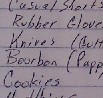 Casual Shorts
Rubber Glove
Knives (Butt
Bourbon (Papp
Cookies